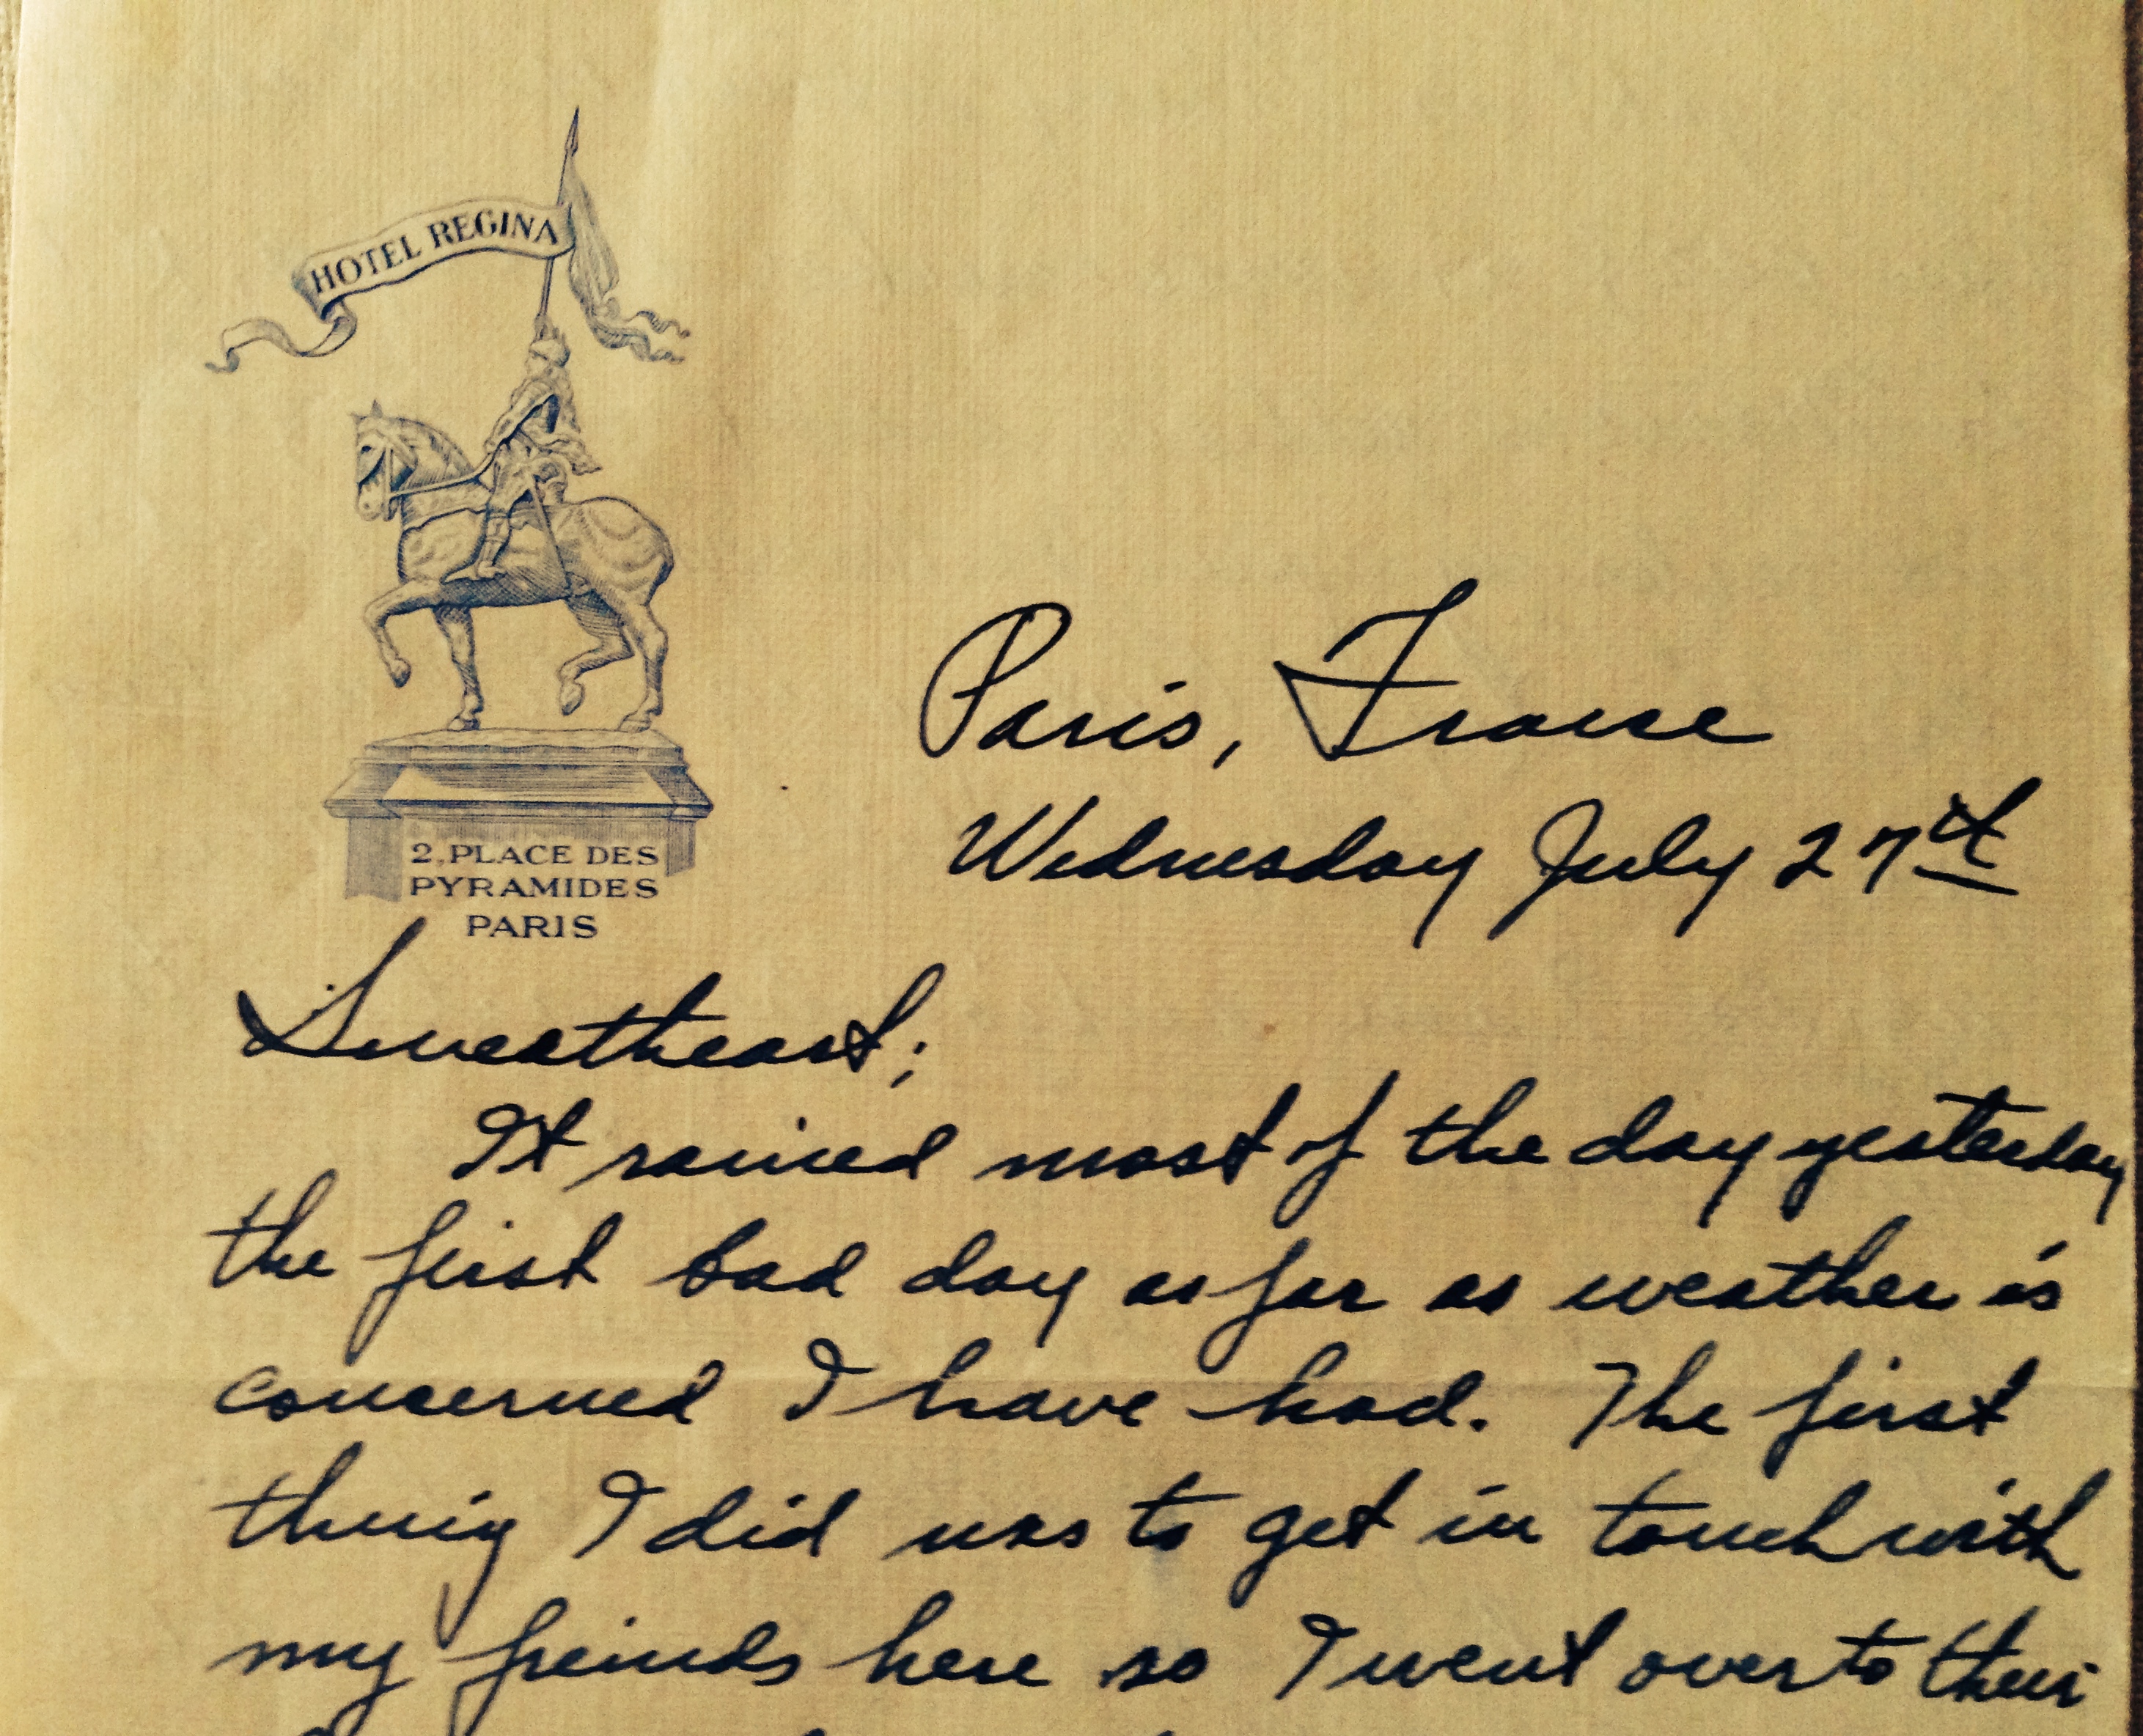 HOTEL REGINA
2, PLACE DES
PYRAMIDES
PARIS
Paris, France
Wednesday July 27th
Sweetheart;
It rained most of the day yesterday
the first bad day as far as weather is
concerned I have had. The first
thing I did was to get in touch with
my freinds here so I went over to their